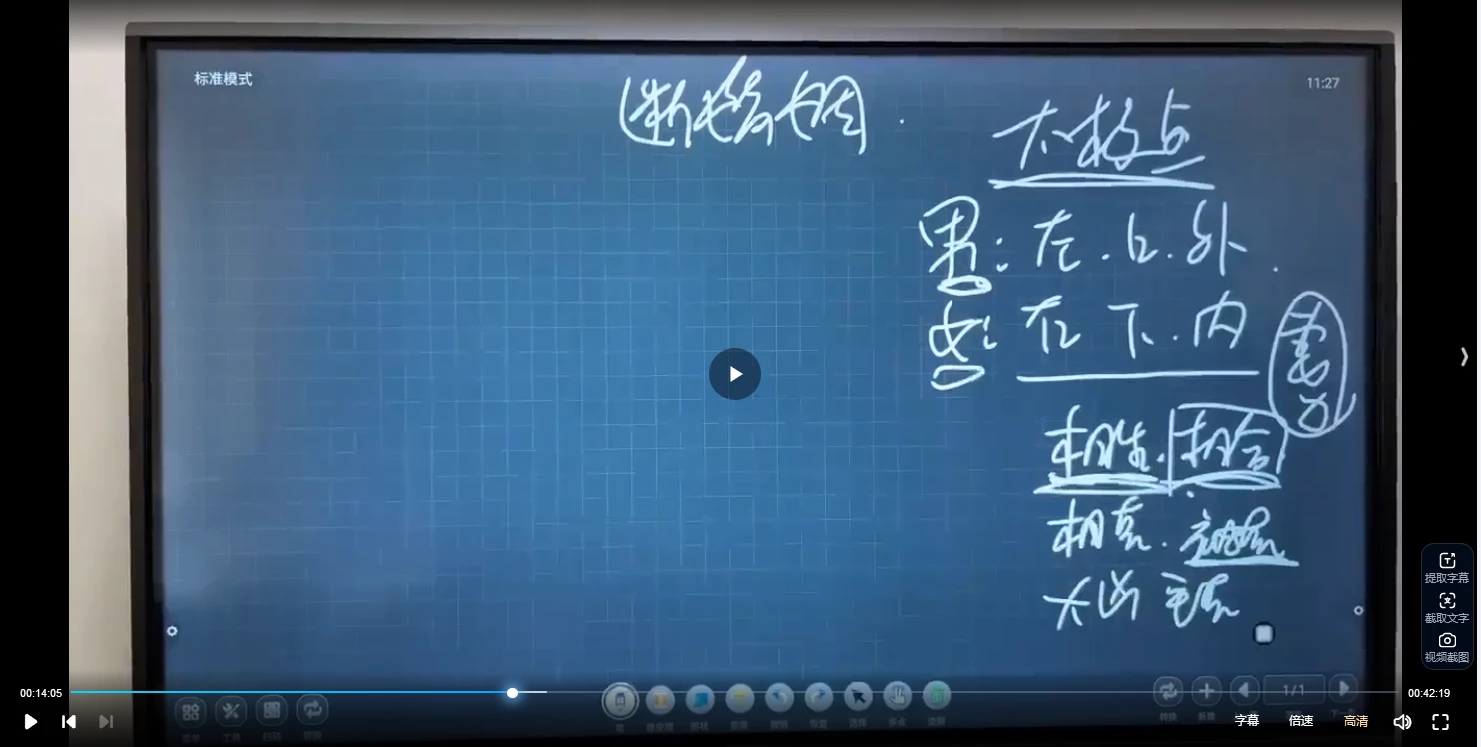 标准模式
11:27
断婚烟
太极点
男:左.上.外.
女:右 下.内
相生.相合
相克.
大凶
提取字幕
截取文字
视频截图
00:14:05
00:42:19
1/1
字幕 倍速 高清